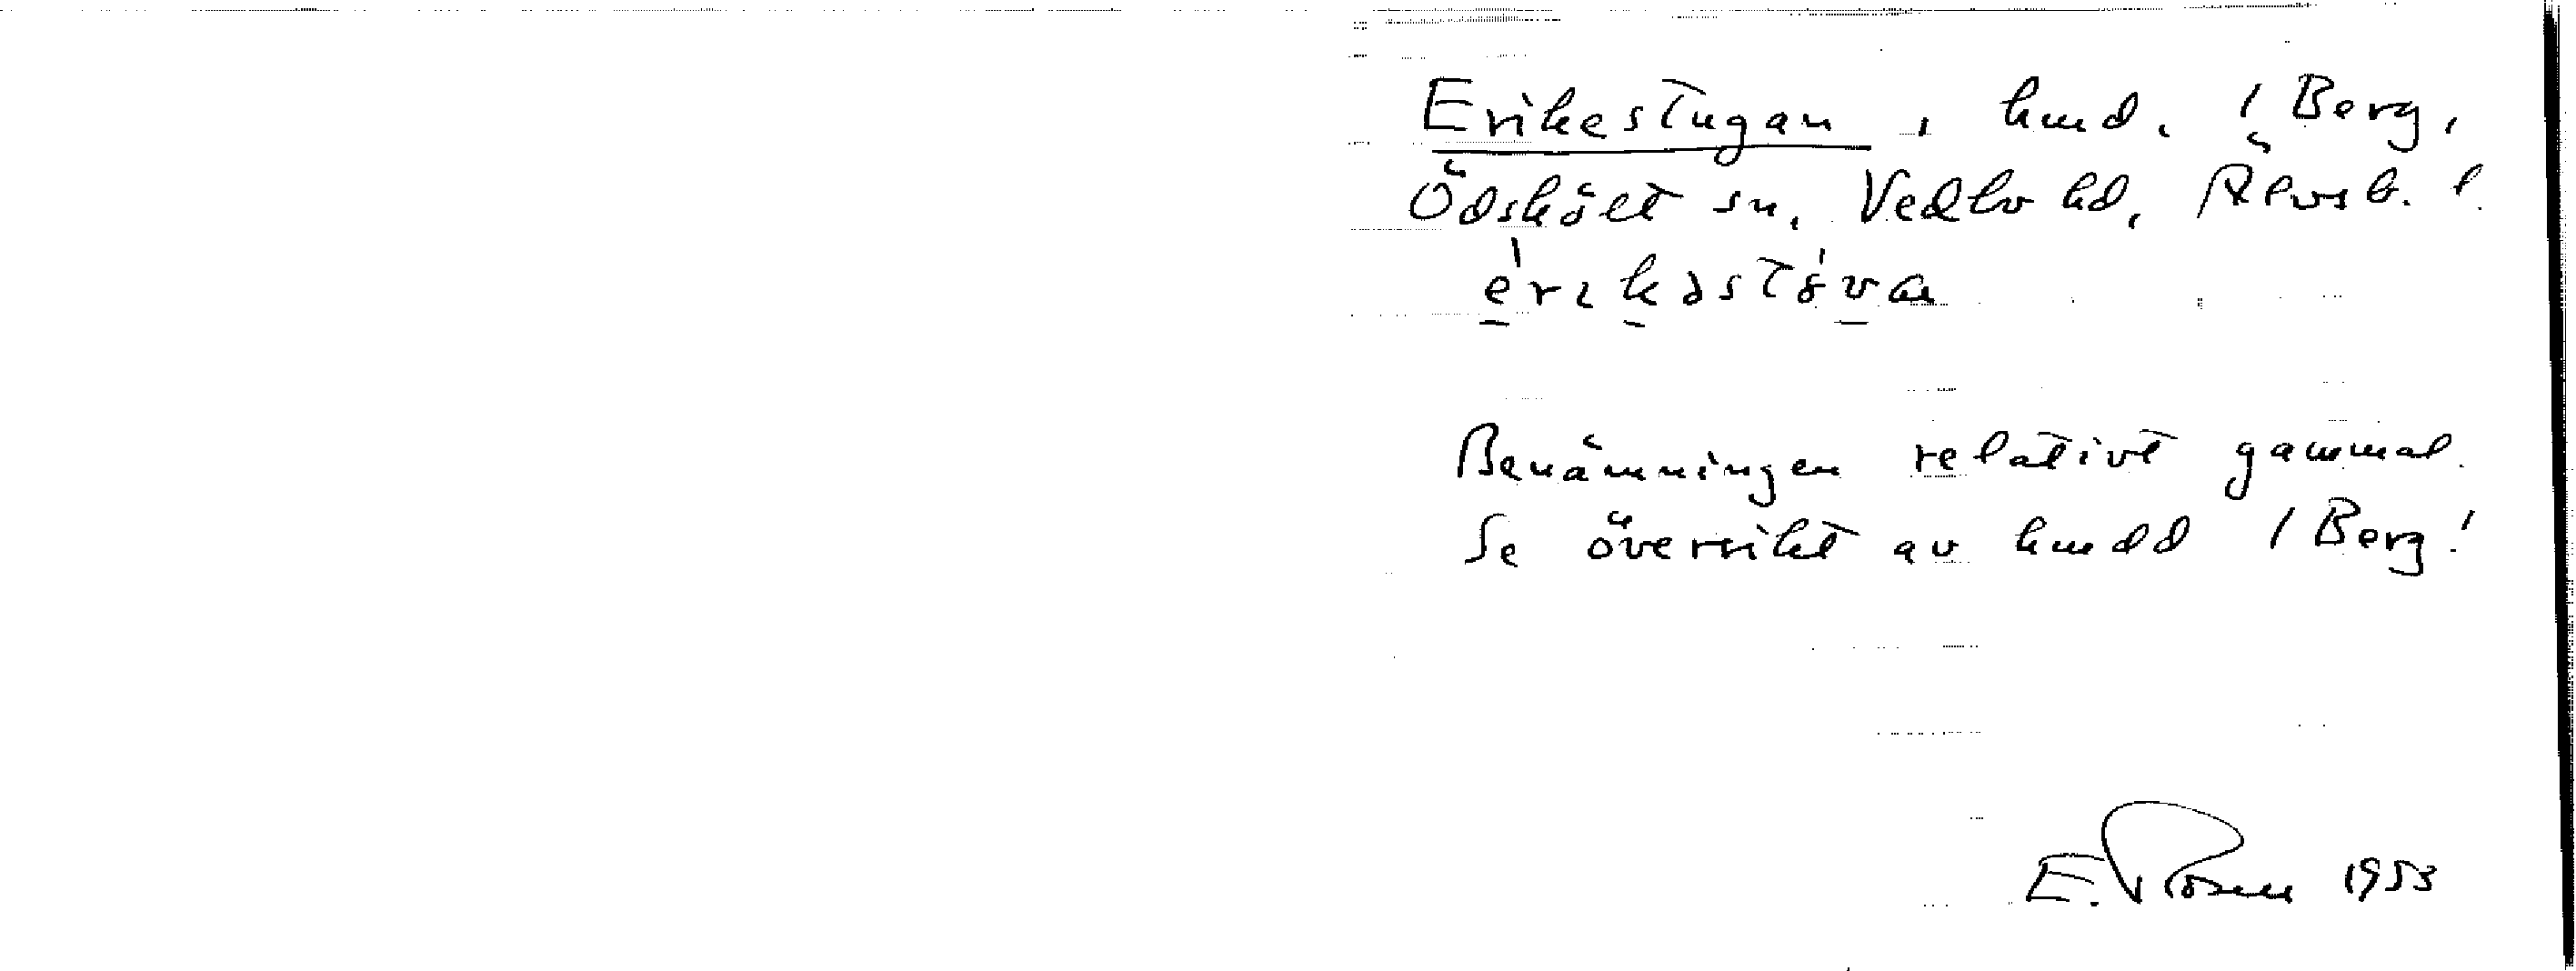 Erikestugan, hmd. i Berg,
Ödskölt sn, Vedbo hd, Älvsb. l.
érɩkəstóva
Benämningen relativt gammal.
Se översikt av hmdd i Berg!
E. Rosen 1953